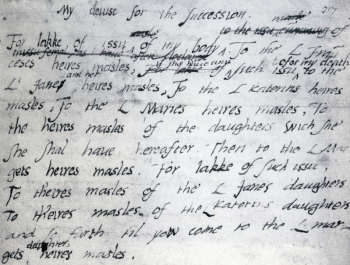 My devise for the succession.
For lakke of issu of my body To the L Fran
ceses heires masles, of such issu, befor my death to the
L' Janes and her heires masles, To the L Katerins heires
masles, To the L Maries heires masles, To
the heires masles of the daughters wich she
she shal have hereafter. Then to the L Mar
gets heires masles. For lakke of such issu,
To theires masles of the L Janes daughters
To theires masles of the L Katerins daughters
and so forth til yow come to the L mar
gets daughters heires masles.